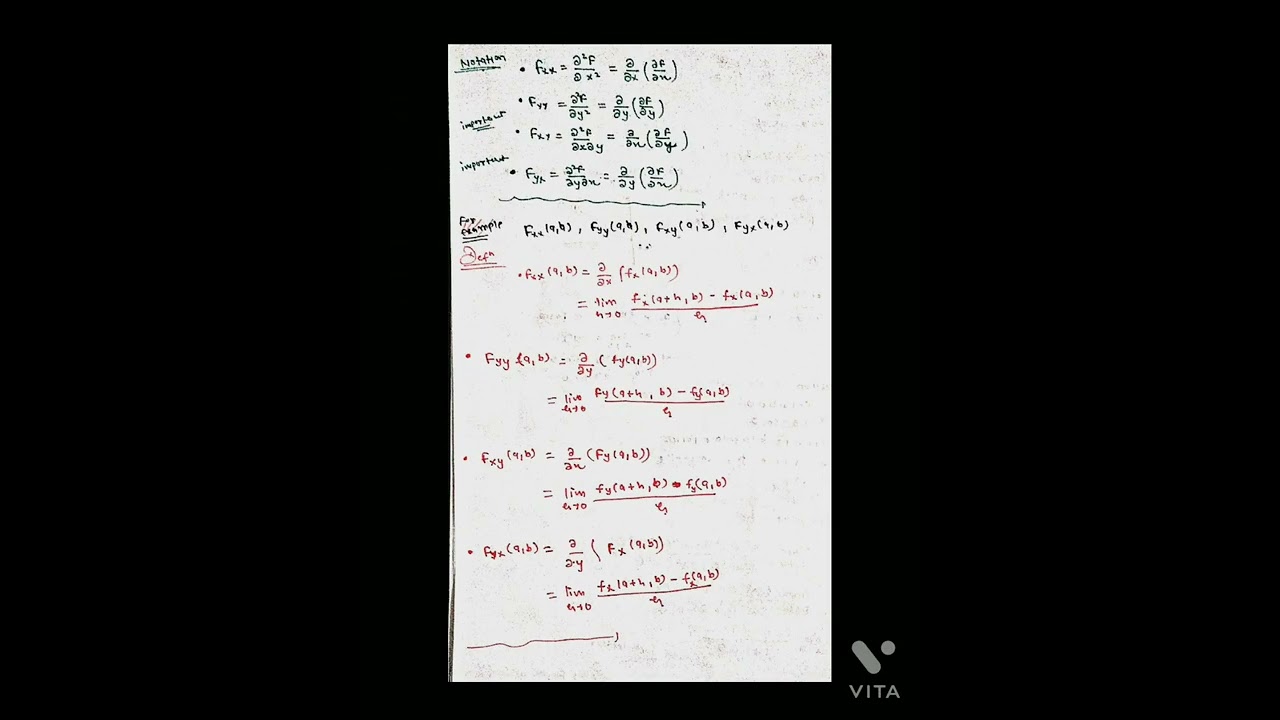 Notation
• fxx = ∂²F/∂x² = ∂/∂x (∂F/∂x)
• Fyy = ∂²F/∂y² = ∂/∂y (∂F/∂y)
important
• Fxy = ∂²F/∂x∂y = ∂/∂x (∂F/∂y)
important
• Fyx = ∂²F/∂y∂x = ∂/∂y (∂F/∂x)
For example
Fxx(a,b), Fyy(a,b), Fxy(a,b), Fyx(a,b)
Defn
• fxx(a,b) = ∂/∂x (fx(a,b))
= lim h→0 fx(a+h, b) - fx(a,b) / h
• Fyy(a,b) = ∂/∂y (fy(a,b))
= lim h→0 Fy(a+h, b) - fy(a,b) / h
• Fxy(a,b) = ∂/∂x (Fy(a,b))
= lim h→0 fy(a+h, b) - fy(a,b) / h
• Fyx(a,b) = ∂/∂y (Fx(a,b))
= lim h→0 fx(a+h, b) - fx(a,b) / h
VITA